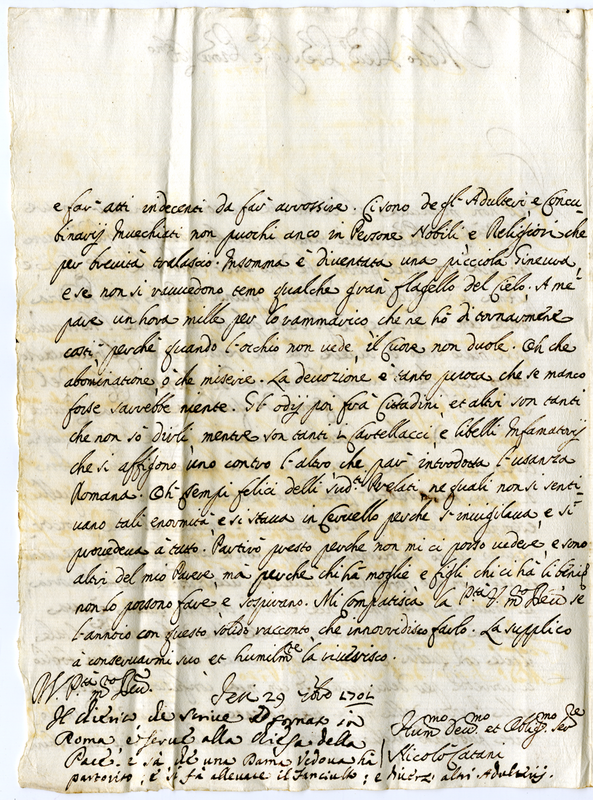 e far atti indecenti da far arrossire. Ci sono de gl' Adulteri e Concu
binarij Invechiati non puochi anco in Persone Nobili e Religiosi che
per brevità tralascio. Insomma è diventata una piccola Gineura,
e se non si raveedono temo qualche gran flagello del Cielo. A me
pare un hora mille per lo rammarico che ne hò di tornarmene
costì perche quando l'occhio non vede, il Cuore non duole. Oh che
abominatione, ò che miserie. La devozione è tanto puoca che se manco
forse sarebbe niente. Gl' odij poi frà Cittadini, et altri son tanti
che non sò dirli mentre son tanti i Cartellacci, e libelli Infamatorij
che si affigono uno contro l'altro che par introdotta l'usanza
Romana. Oh tempi felici delli sud.ti Prelati, ne quali non si senti
vano tali enormità e si stava in Cervello perche s'invigilava, e si
procedeva à tutto. Partirò presto perche non mi ci posso vedere, e sono
altri del mio Parere, mà perche chi hà moglie e figli chi ci hà li beni
non lo possono fare, e sospirano. Mi Compatisca la P.tà V. m.to Rev. se
l'annoio con questo solido racconto che innorridisco farlo. La supplico
à conservarmi suo et humilm.te la riverisco.
V. P.tà m.to Rev.
Jesi 29 8bre 1701
Il chierico che scrive Fornar in
Roma e serve alla Chiesa della
Pace: e sà che una Dama Vedova hà
partorito, e si fà allevare il fanciullo; e diversi altri Adulterij.
Hum.mo Dev.mo et Oblig.mo Ser.re
Nicolò Catani